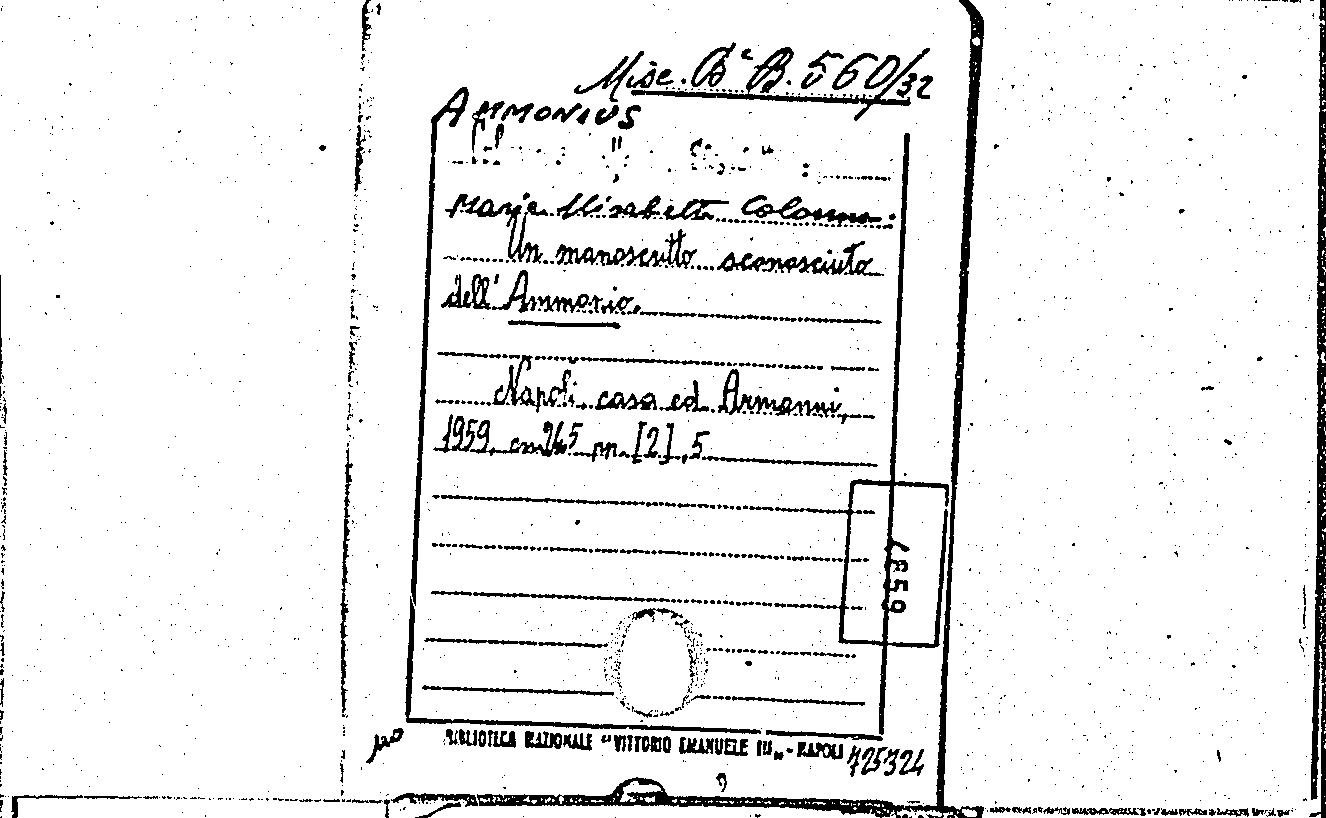 Misc. Bª B. 560/32
AMMONIUS
Maria Elisabetta Colonna:
Un manoscritto sconosciuto
dell'Ammonio.
Napoli, casa ed Armanni,
1959, cm 24,5 pp. [2], 5
4859
BIBLIOTECA NAZIONALE "VITTORIO EMANUELE III" - NAPOLI
725324